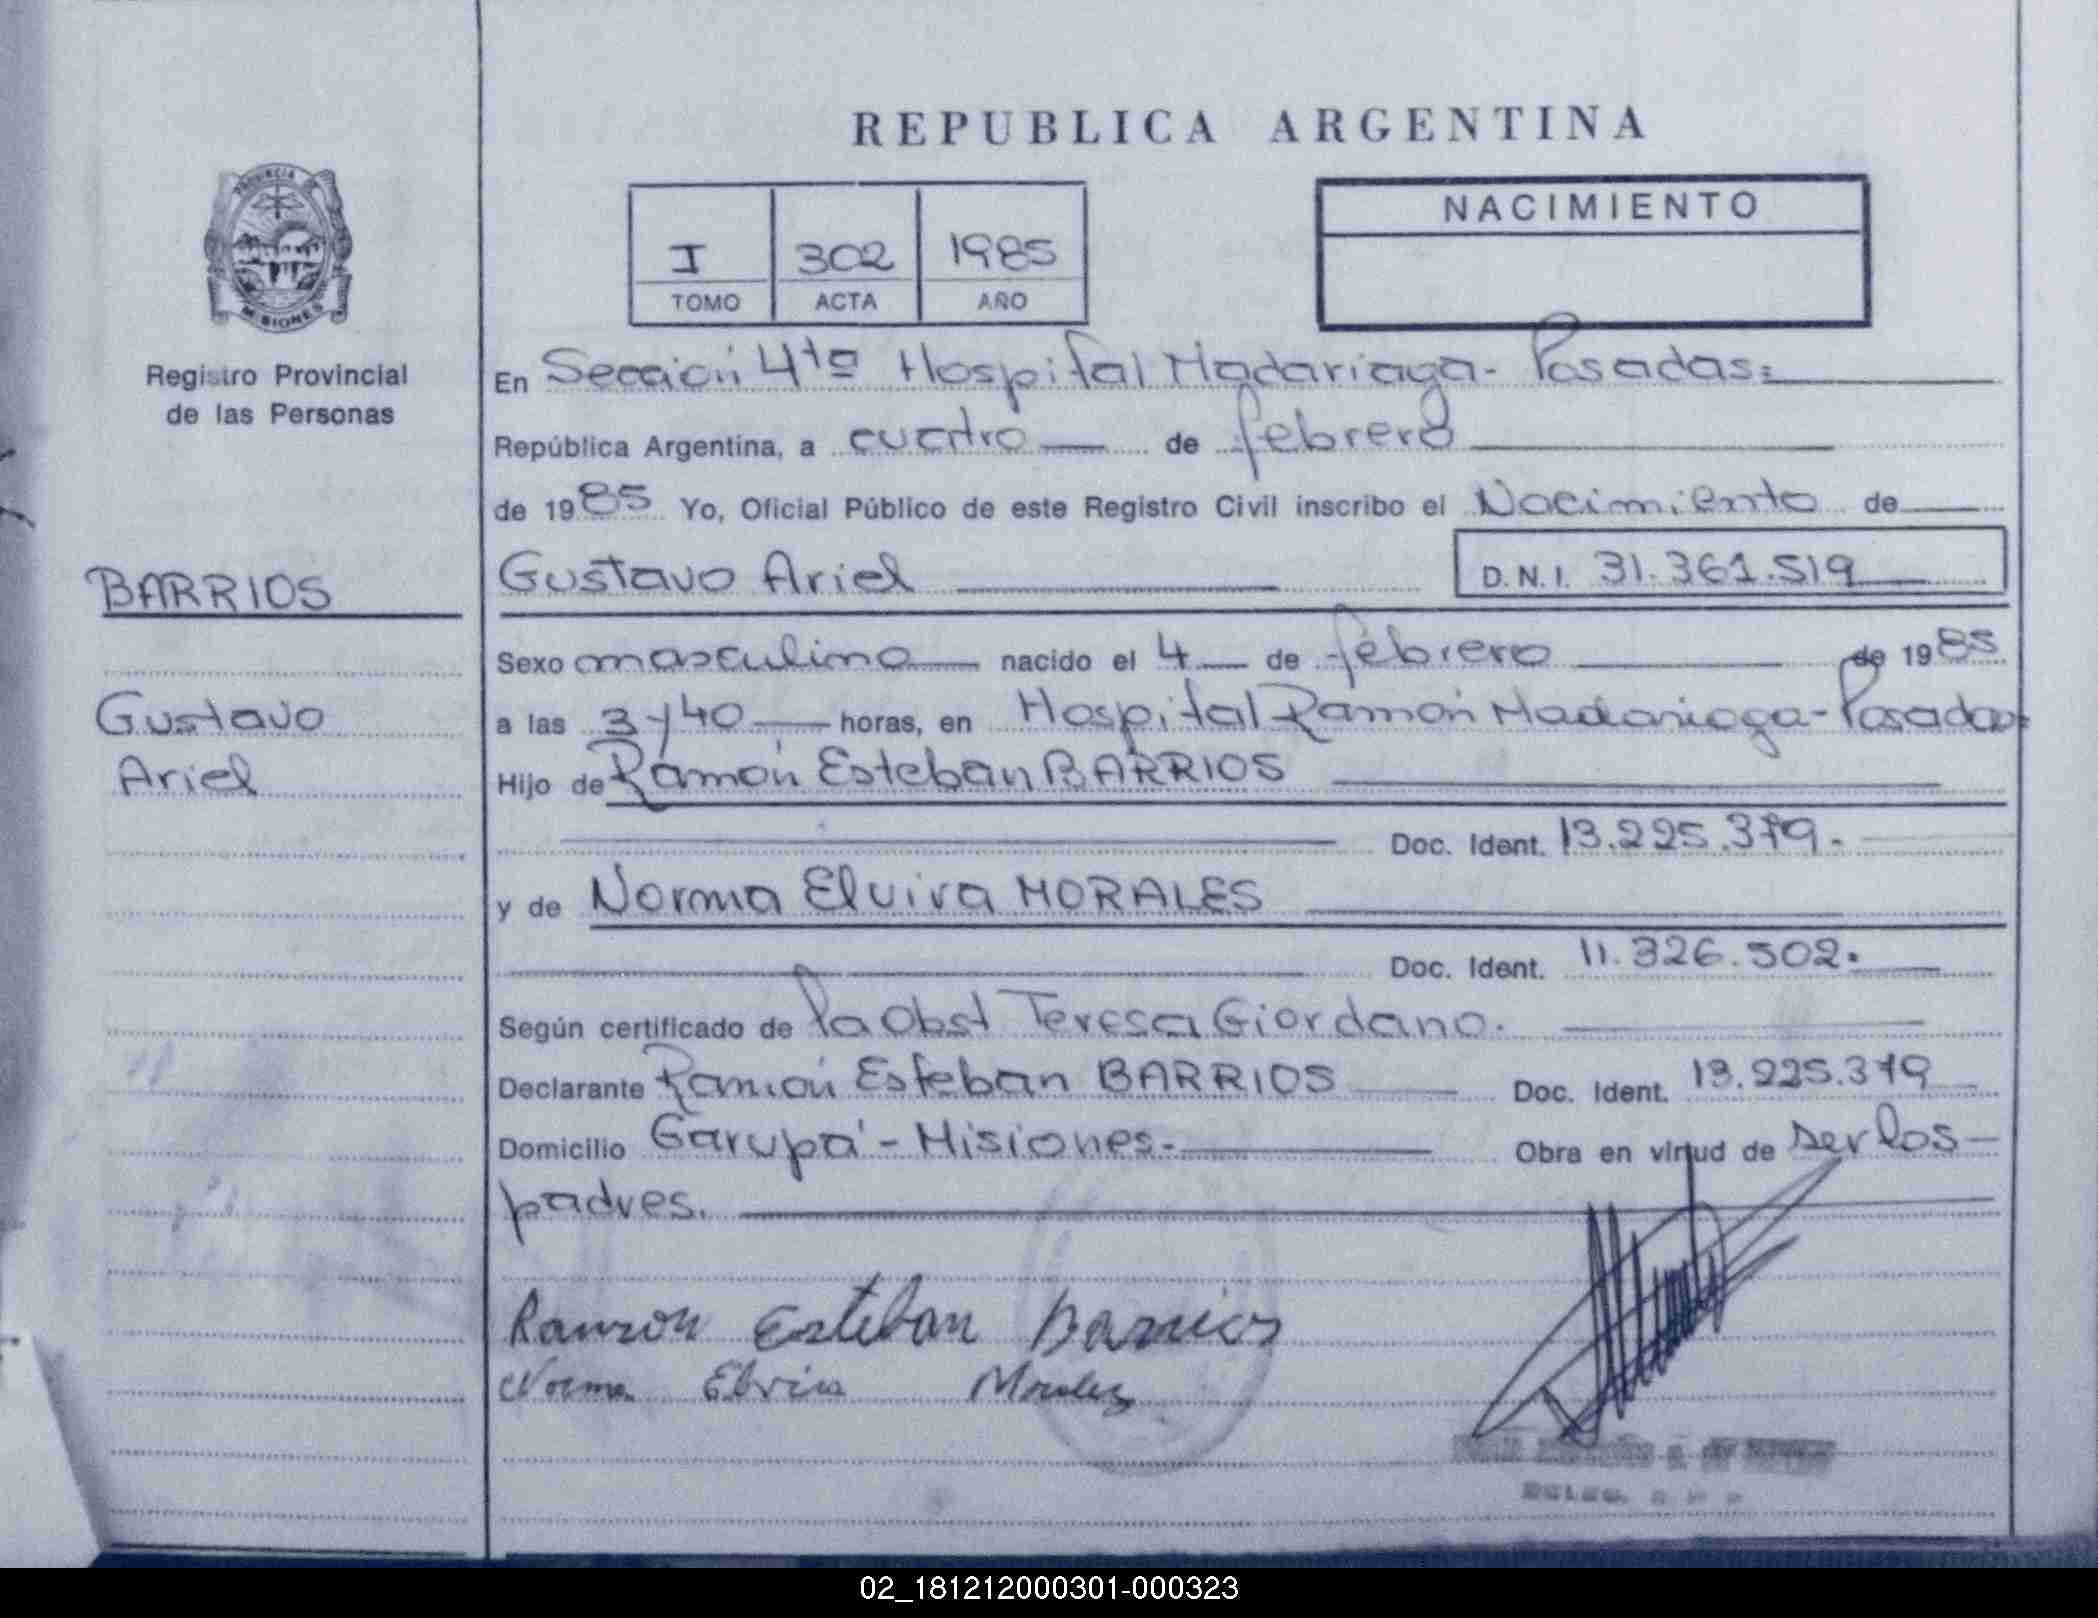 REPUBLICA ARGENTINA
PROVINCIA DE
MISIONES
Registro Provincial
de las Personas
I 302 1985
TOMO ACTA AÑO
NACIMIENTO
En Sección 4ta Hospital Madariaga - Posadas:
República Argentina, a cuatro de febrero
de 1985 Yo, Oficial Público de este Registro Civil inscribo el Nacimiento de
BARRIOS
Gustavo Ariel D.N.I. 31.361.519
Sexo masculino nacido el 4 de febrero de 1985
Gustavo
a las 3 y 40 horas, en Hospital Ramón Madariaga - Posadas
Ariel
Hijo de Ramón Esteban BARRIOS
Doc. Ident. 13.225.379.
y de Norma Elvira MORALES
Doc. Ident. 11.326.502.
Según certificado de la Obst Teresa Giordano.
Declarante Ramón Esteban BARRIOS Doc. Ident. 13.225.379
Domicilio Garupá - Misiones - Obra en virtud de ser los
padres.
Ramón Esteban Barrios
Norma Elvira Morales
02_181212000301-000323